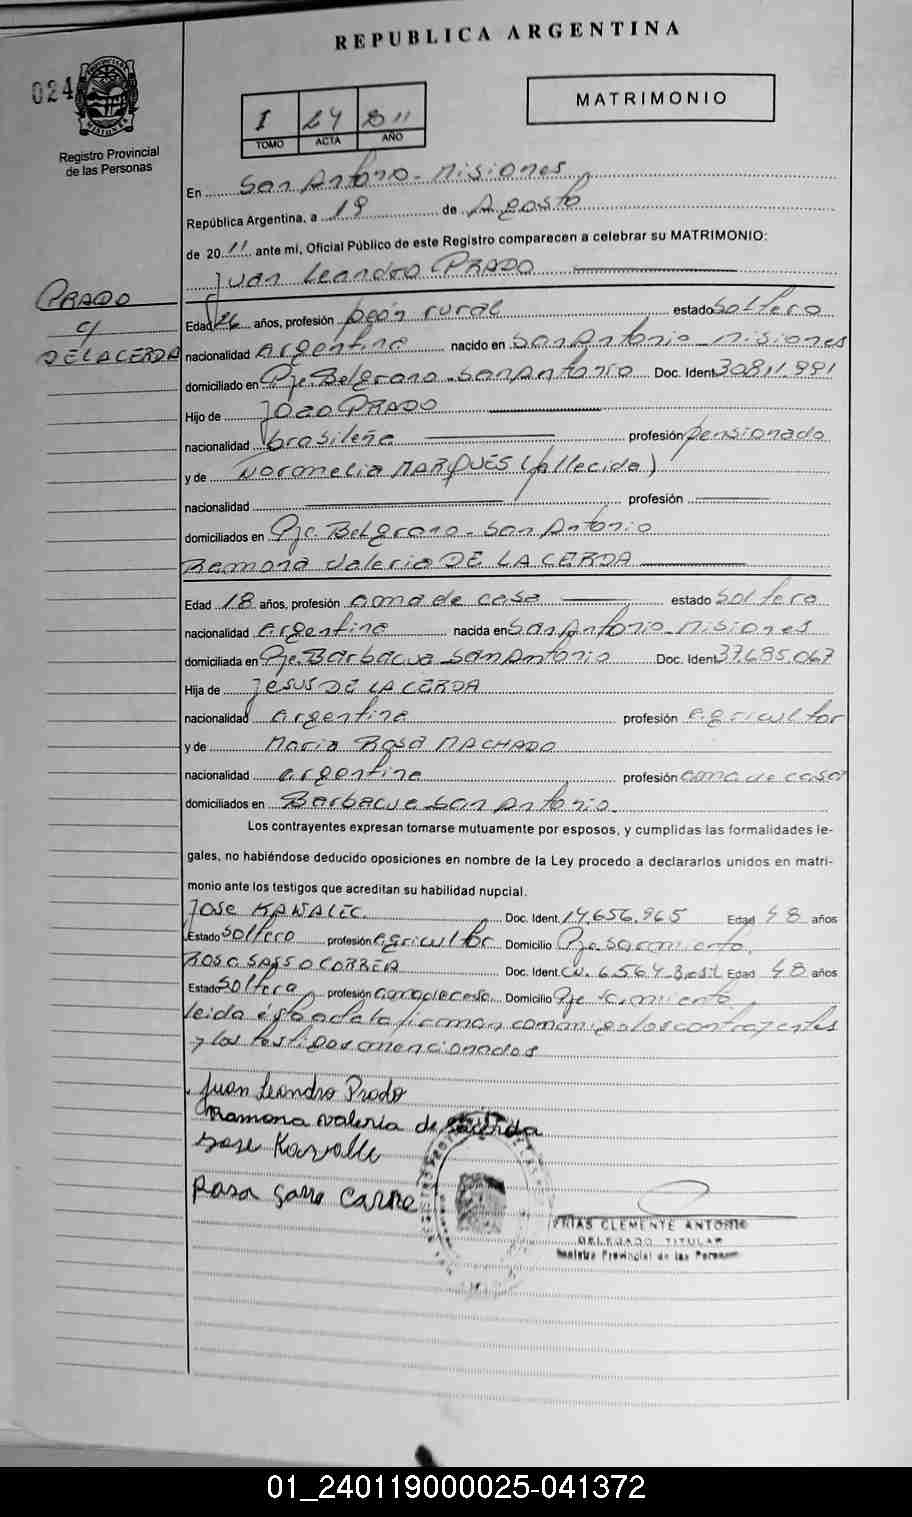 REPUBLICA ARGENTINA
024
I 24 2011
TOMO ACTA AÑO
MATRIMONIO
Registro Provincial
de las Personas
En San Antonio - Misiones
República Argentina, a 19 de Agosto
de 2011 ante mi, Oficial Público de este Registro comparecen a celebrar su MATRIMONIO:
Juan Leandro PRADO
PRADO
c/
DE LA CERDA
Edad 26 años, profesión peón rural estado Soltero
nacionalidad Argentina nacido en San Antonio - Misiones
domiciliado en Pje. Belgrano - San Antonio Doc. Ident. 30.811.991
Hijo de Joao PRADO
nacionalidad brasileña profesión pensionado
y de Noromelia MARQUES (fallecida)
nacionalidad profesión
domiciliados en Pje. Belgrano - San Antonio
Ramona Valeria DE LA CERDA
Edad 18 años, profesión ama de casa estado Soltera
nacionalidad argentina nacida en San Antonio - Misiones
domiciliada en Pje. Barbacua San Antonio Doc. Ident. 37.685.067
Hija de Jesus DE LA CERDA
nacionalidad argentina profesión agricultor
y de Maria Rosa MACHADO
nacionalidad argentina profesión ama de casa
domiciliados en Barbacua San Antonio.
Los contrayentes expresan tomarse mutuamente por esposos, y cumplidas las formalidades le-
gales, no habiéndose deducido oposiciones en nombre de la Ley procedo a declararlos unidos en matri-
monio ante los testigos que acreditan su habilidad nupcial.
Jose KAWALEC. Doc. Ident. 14.656.965 Edad 48 años
Estado Soltero profesión agricultor Domicilio Pje. Sarmiento.
ROSA SASSO CORREA Doc. Ident. C.I. 6.564-Brasil Edad 48 años
Estado Soltera profesión ama de casa Domicilio Pje Sarmiento,
leida ésta acta la firman conmigo los contrayentes
y los testigos mencionados
Juan Leandro Prado
Ramona Valeria de la cerda
Jose Kavalle
Rosa Sasso
FRIAS CLEMENTE ANTONIO
DELEGADO TITULAR
Registro Provincial de las Personas
01_240119000025-041372